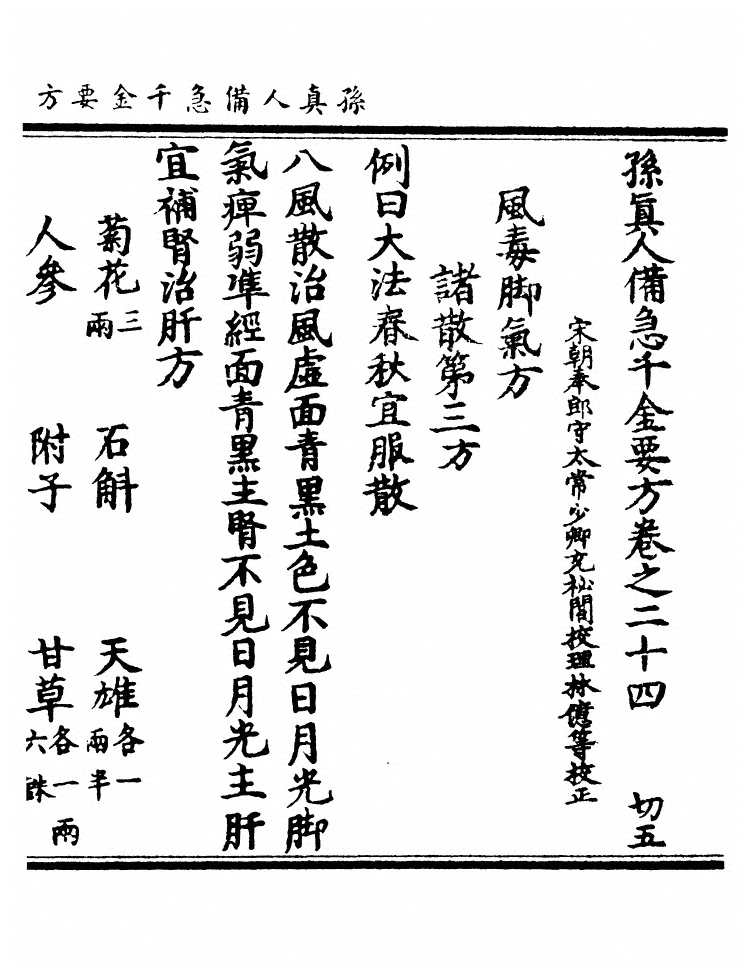 孫真人備急千金要方
孫眞人備急千金要方卷之二十四 切五
宋朝奉郎守太常少卿充祕閣校理林億等校正
風毒脚氣方
諸散第三方
例曰大法春秋宜服散
八風散治風虛面青黑土色不見日月光脚
氣痺弱準經面青黑主腎不見日月光主肝
宜補腎治肝方
菊花三兩 石斛 天雄各一兩半
人參 附子 甘草各一兩六銖